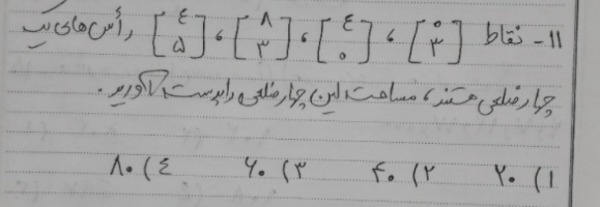 ۱۱- نقاط [۰ ۳] ، [۴ ۰] ، [۸ ۳] ، [۴ ۵] رأس های یک
چهارضلعی هستند، مساحت این چهارضلعی را بدست آورید.
۱) ۲۰ ۲) ۴۰ ۳) ۶۰ ۴) ۸۰